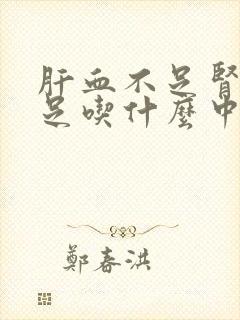 肝血不足腎
足喫什麼中
鄭春洪